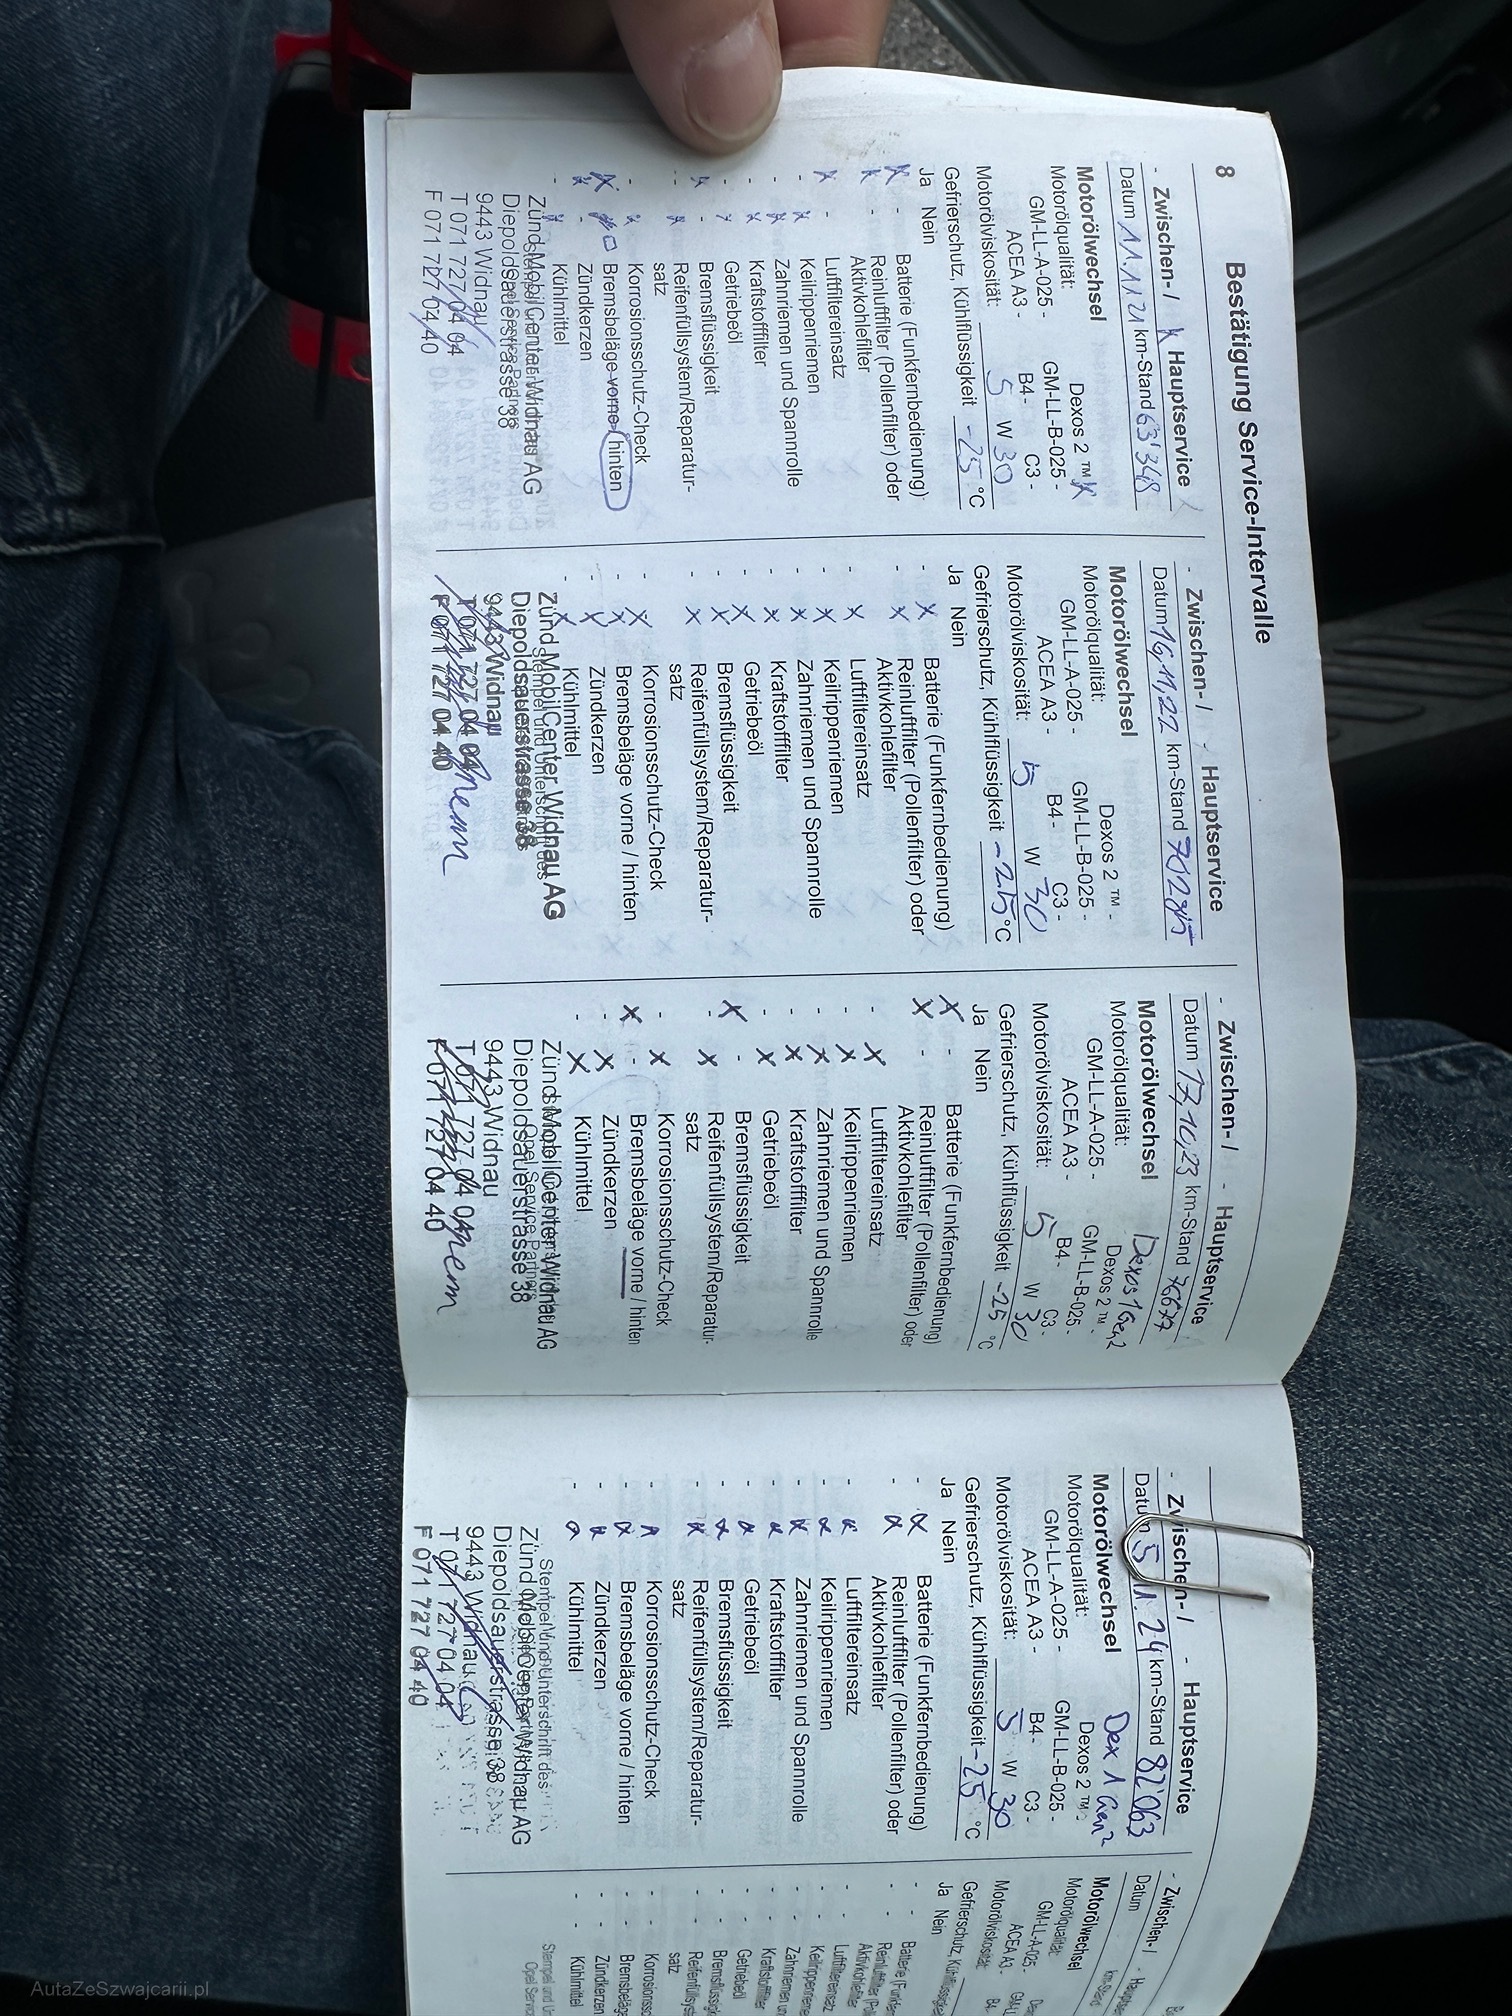 8
Bestätigung Service-Intervalle
- Zwischen- / Hauptservice
Datum 11.11.21 km-Stand 63'348
Motorölwechsel
Motorölqualität: Dexos 2 ™
GM-LL-A-025 - GM-LL-B-025 -
ACEA A3 - B4- C3 -
Motorölviskosität: 5 W 30
Gefrierschutz, Kühlflüssigkeit -25 °C
Ja Nein
Batterie (Funkfernbedienung)
Reinluftfilter (Pollenfilter) oder
Aktivkohlefilter
Luftfiltereinsatz
Keilrippenriemen
Zahnriemen und Spannrolle
Kraftstofffilter
Getriebeöl
Bremsflüssigkeit
Reifenfüllsystem/Reparatur-
satz
Korrosionsschutz-Check
Bremsbeläge vorne / hinten
Zündkerzen
Kühlmittel
Zünd MobilCenter Widnau AG
Diepoldsauerstrasse 38
9443 Widnau
T 071 727 04 04
F 071 727 04 40
- Zwischen- / Hauptservice
Datum 16.11.22 km-Stand
Motorölwechsel
Motorölqualität: Dexos 2 ™ -
GM-LL-A-025 - GM-LL-B-025 -
ACEA A3 - B4- C3 -
Motorölviskosität: 5 W 30
Gefrierschutz, Kühlflüssigkeit -25 °C
Ja Nein
Batterie (Funkfernbedienung)
Reinluftfilter (Pollenfilter) oder
Aktivkohlefilter
Luftfiltereinsatz
Keilrippenriemen
Zahnriemen und Spannrolle
Kraftstofffilter
Getriebeöl
Bremsflüssigkeit
Reifenfüllsystem/Reparatur-
satz
Korrosionsschutz-Check
Bremsbeläge vorne / hinten
Zündkerzen
Kühlmittel
Zünd MobilCenter Widnau AG
Diepoldsauerstrasse 38
9443 Widnau
T 071 727 04 04
F 071 727 04 40
- Zwischen- / - Hauptservice
Datum 17.10.23 km-Stand 76677
Motorölwechsel Dexos 1 Gen 2
Motorölqualität: Dexos 2 ™ -
GM-LL-A-025 - GM-LL-B-025 -
ACEA A3 - B4- C3 -
Motorölviskosität: 5 W 30
Gefrierschutz, Kühlflüssigkeit -25 °C
Ja Nein
Batterie (Funkfernbedienung)
Reinluftfilter (Pollenfilter) oder
Aktivkohlefilter
Luftfiltereinsatz
Keilrippenriemen
Zahnriemen und Spannrolle
Kraftstofffilter
Getriebeöl
Bremsflüssigkeit
Reifenfüllsystem/Reparatur-
satz
Korrosionsschutz-Check
Bremsbeläge vorne / hinten
Zündkerzen
Kühlmittel
Opel Service Partners
Zünd MobilCenter Widnau AG
Diepoldsauerstrasse 38
9443 Widnau
T 071 727 04 04
F 071 727 04 40
- Zwischen- / - Hauptservice
Datum 5.11.24 km-Stand 82'063
Motorölwechsel Dex 1 Gen 2
Motorölqualität: Dexos 2 ™ -
GM-LL-A-025 - GM-LL-B-025 -
ACEA A3 - B4- C3 -
Motorölviskosität: 5 W 30
Gefrierschutz, Kühlflüssigkeit -25 °C
Ja Nein
Batterie (Funkfernbedienung)
Reinluftfilter (Pollenfilter) oder
Aktivkohlefilter
Luftfiltereinsatz
Keilrippenriemen
Zahnriemen und Spannrolle
Kraftstofffilter
Getriebeöl
Bremsflüssigkeit
Reifenfüllsystem/Reparatur-
satz
Korrosionsschutz-Check
Bremsbeläge vorne / hinten
Zündkerzen
Kühlmittel
Stempel und Unterschrift des
Zünd MobilCenter Widnau AG
Diepoldsauerstrasse 38
9443 Widnau
T 071 727 04 04
F 071 727 04 40
- Zwischen- /
Datum km-Stand
Motorölwechsel
Motorölqualität:
GM-LL-A-025 -
ACEA A3 - B4
Motorölviskosität:
Gefrierschutz, Kühlflüssigkeit
Ja Nein
Batterie
Reinluftfilter
Aktivkohlefilter
Luftfiltereinsatz
Keilrippenriemen
Zahnriemen
Kraftstofffilter
Getriebeöl
satz
Zündkerzen
Kühlmittel
Stempel und
AutaZeSzwajcarii.pl